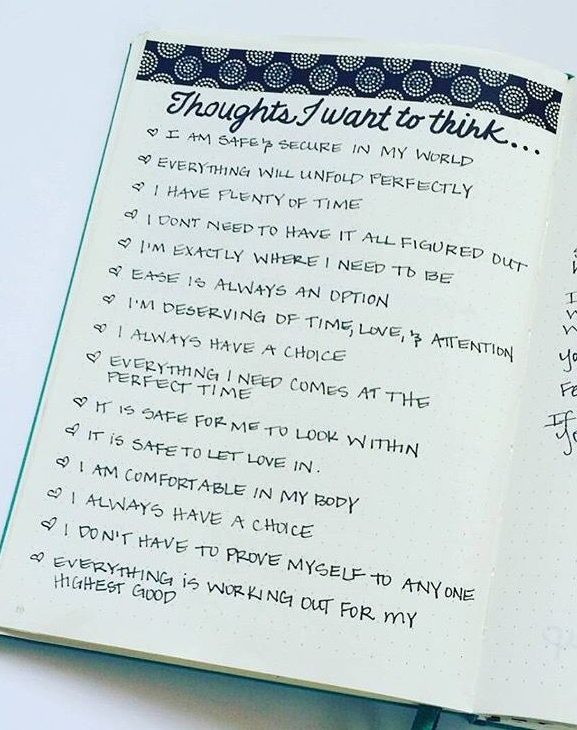 Thoughts I want to think...
I AM SAFE & SECURE IN MY WORLD
EVERYTHING WILL UNFOLD PERFECTLY
I HAVE PLENTY OF TIME
I DONT NEED TO HAVE IT ALL FIGURED OUT
I'M EXACTLY WHERE I NEED TO BE
EASE IS ALWAYS AN OPTION
I'M DESERVING OF TIME, LOVE, & ATTENTION
I ALWAYS HAVE A CHOICE
EVERYTHING I NEED COMES AT THE
PERFECT TIME
IT IS SAFE FOR ME TO LOOK WITHIN
IT IS SAFE TO LET LOVE IN.
I AM COMFORTABLE IN MY BODY
I ALWAYS HAVE A CHOICE
I DON'T HAVE TO PROVE MYSELF TO ANYONE
EVERYTHING IS WORKING OUT FOR MY
HIGHEST GOOD